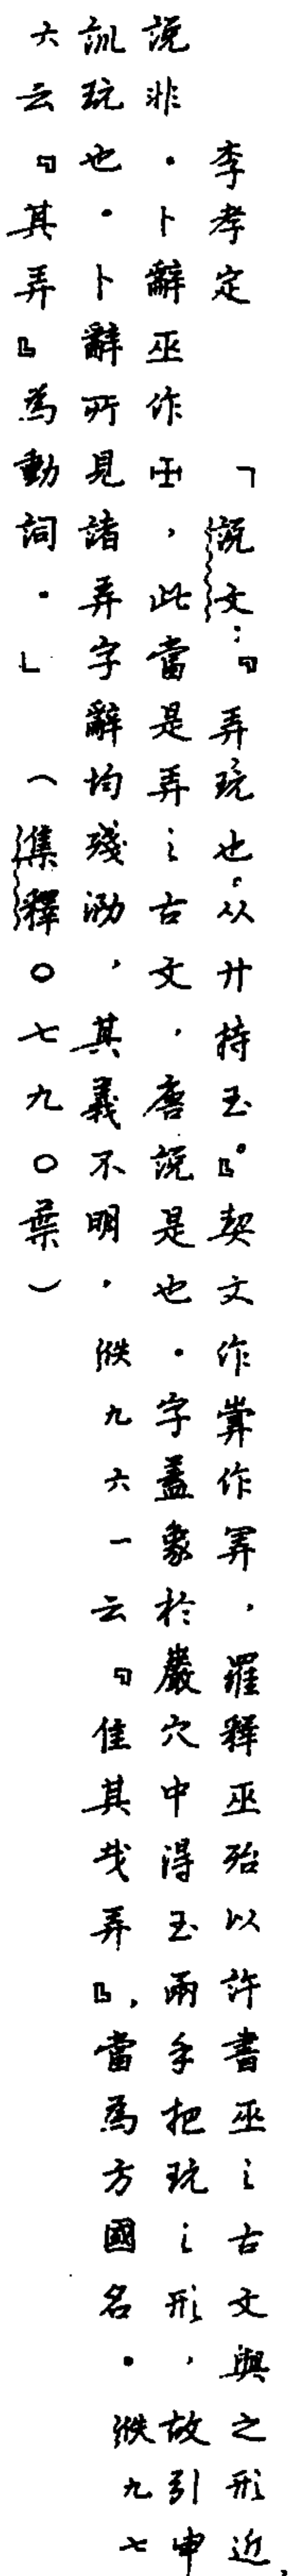 李孝定　「說文：『弄玩也。从廾持玉』。契文作作，羅釋巫殆以許書巫之古文與之形近，
說非．卜辭巫作，此當是弄之古文，唐說是也．字蓋象於巖穴中得玉兩手把玩之形，故引申
訓玩也．卜辭所見諸弄字辭均殘泐，其義不明，佚九六一云『隹其弄』，當為方國名．佚九七
六云『其弄』為動詞．」（集釋〇七九〇葉）